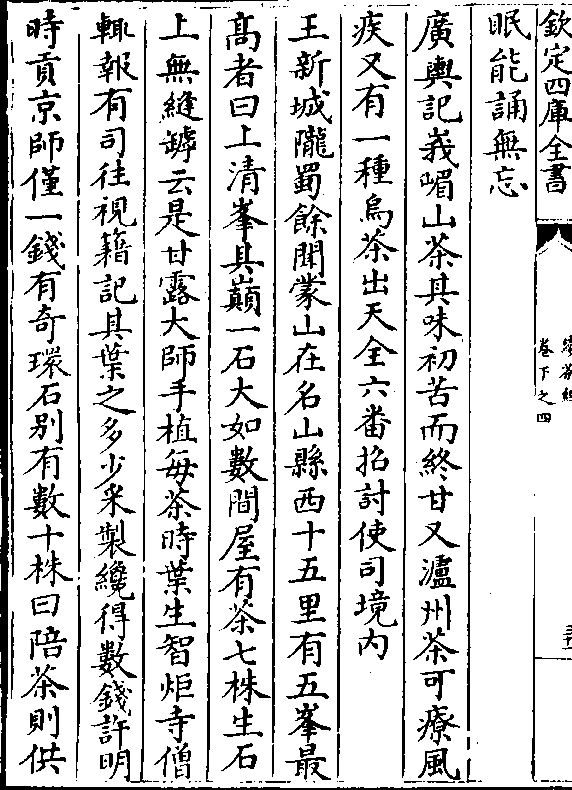 欽定四庫全書
續茶經
卷下之四
眠能誦無忘
廣輿記峩嵋山茶其味初苦而終甘又瀘州茶可療風
疾又有一種烏茶出天全六番招討使司境內
王新城隴蜀餘聞蒙山在名山縣西十五里有五峯最
髙者曰上清峯其巔一石大如數間屋有茶七株生石
上無縫罅云是甘露大師手植每茶時葉生智炬寺僧
輒報有司往視籍記其葉之多少采製纔得數錢許明
時貢京師僅一錢有奇環石别有數十株曰陪茶則供